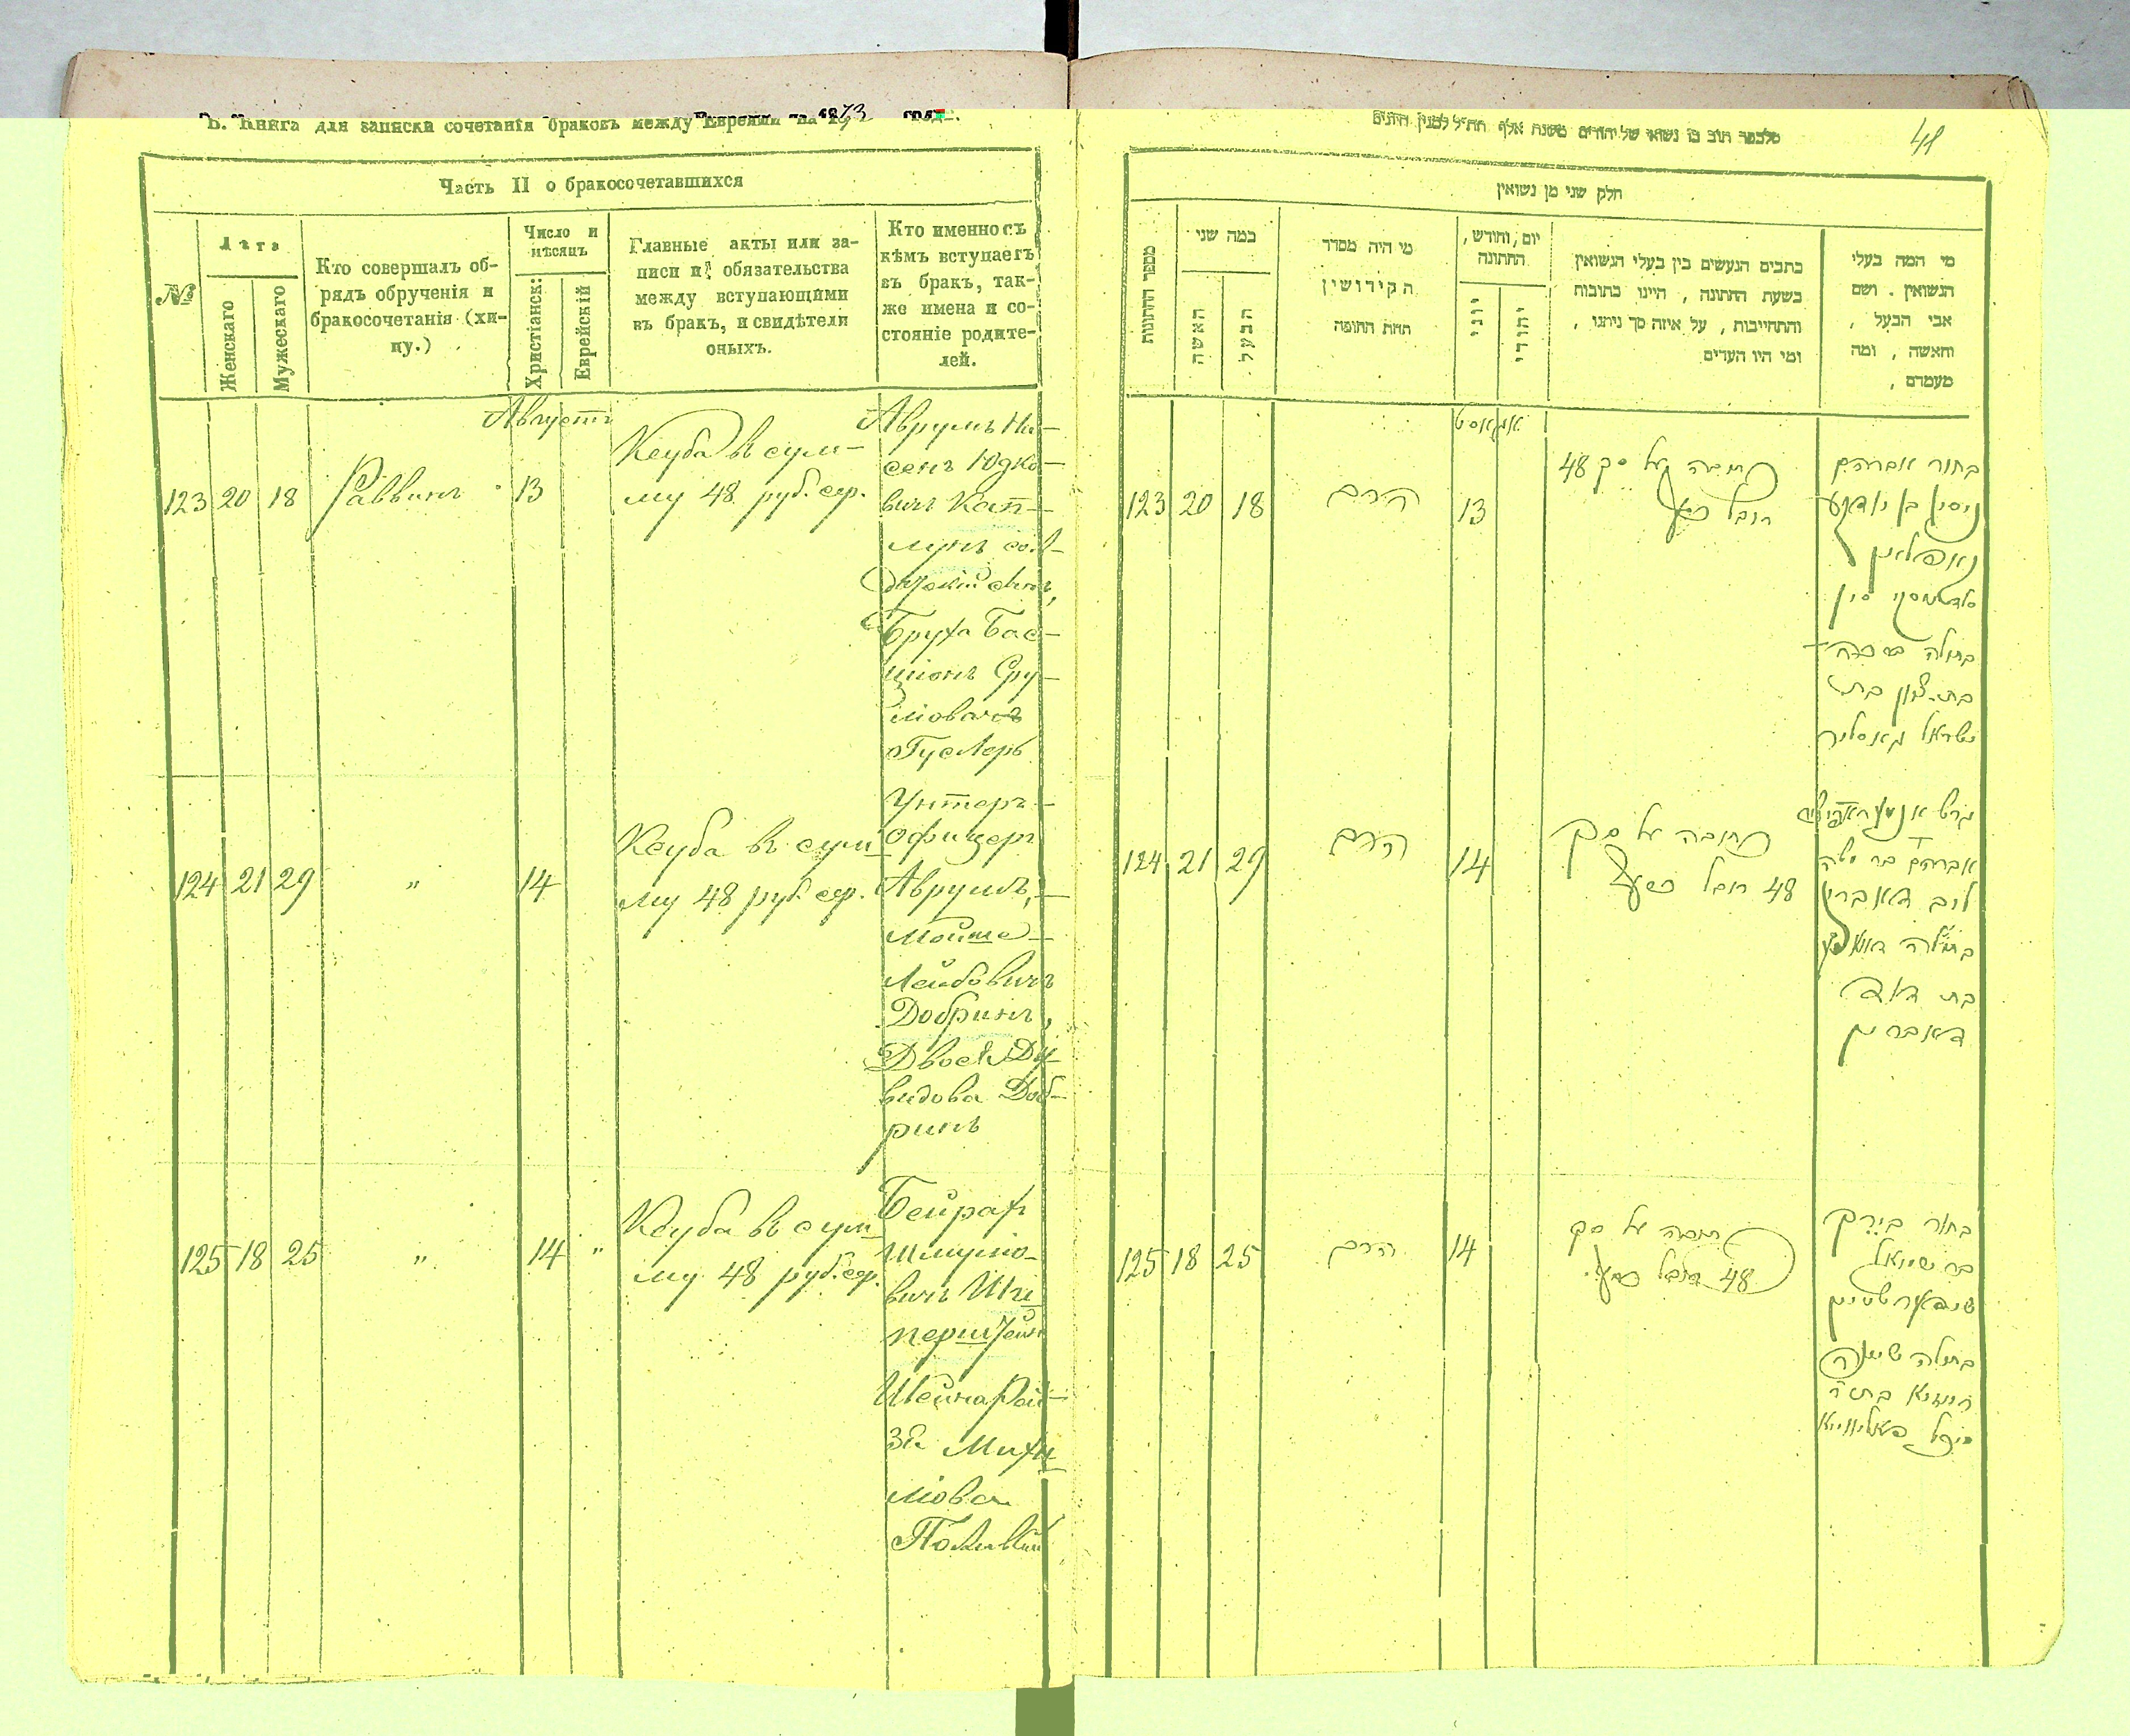 В. Книга для записки сочетанія браковъ между Евреями на 1873 годъ.
Часть II о бракосочетавшихся
№
Лѣта
Женскаго
Мужескаго
Кто совершалъ об-
рядъ обрученія и
бракосочетанія (хи-
пу.)
Число и
мѣсяцъ
Христіанск:
Еврейскій
Главные акты или за-
писи и обязательства
между вступающими
въ бракъ, и свидѣтели
оныхъ.
Кто именно съ
кѣмъ вступаетъ
въ бракъ, так-
же имена и со-
стояніе родите-
лей.
Августъ
123 20 18 Раввинъ 13
Кеуба въ сум-
му 48 руб. сер.
Аврумъ Ни-
сенъ Юдко-
вичъ Кап-
лунъ сол-
датскій сынъ,
Бруха Бас-
ціонъ Сру-
лiова
Гуслеръ
124 21 29 " 14
Кеуба въ сум
му 48 руб. сер.
Унтеръ-
офицеръ
Аврумъ,-
Мойше-
Лейбовичъ
Добринъ,
Двося Ду-
видова Доб-
ринъ
125 18 25 " 14 "
Кеуба въ сум
му 48 руб. сер.
Бейрах
Шмуліо-
вичъ Ши
перштейн
Шейна Рай-
за Михе
ліова
41
חלק שני מן נשואין
מספר החתונות
כמה שני
האשה
הבעל
מי היה מסדר
הקידושין
תחת החופה
יום, וחודש,
החתונה
יוני
יהודי
כתבים הנעשים בין בעלי הנשואין
בשעת החתונה, היינו כתובות
והתחייבות, על איזה סך ניתנו,
ומי היו העדים
מי המה בעלי
הנשואין. ושם
אבי הבעל,
והאשה, ומה
מעמדם,
אוגוסט
123 20 18 הרב 13
כתובה על סך 48
רובל כסף
בחור אברהם
ניסין בן יודקע
קאפלאן
בתולה ברכה
בת ציון בת
ישראל
124 21 29 הרב 14
כתובה על סך
48 רובל כסף
אברהם בר משה
לוב דאברין
בת דוד
דאברין
125 18 25 הרב 14
כתובה על סך
48 רובל כסף
בחור בירך
בר שמואל
בתולה שיינה
רייזא בת ר'